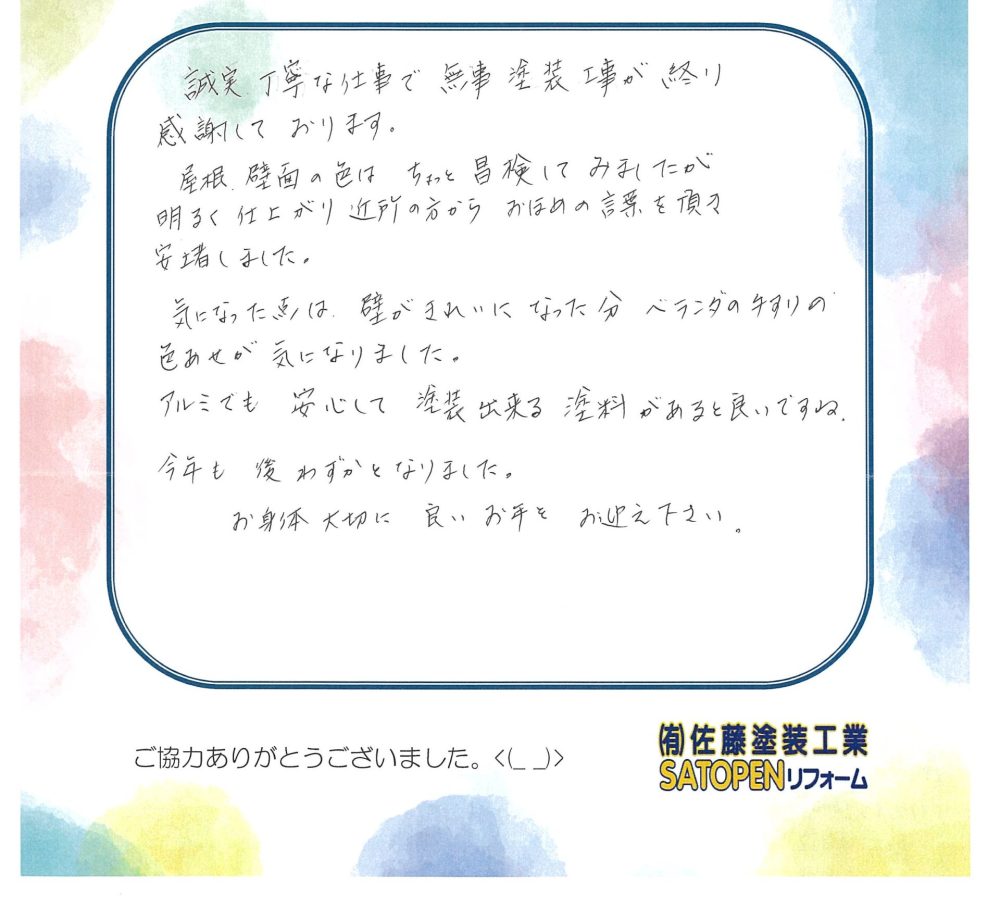 誠実 丁寧な仕事で 無事 塗装 工事が 終り
感謝して おります。
屋根、壁面の色は ちょっと 冒検して みましたが
明るく 仕上がり 近所の方から おほめの言葉を頂き
安堵しました。
気になった点は 壁がきれいに なった分 ベランダの手すりの
色あせが 気になりました。
アルミでも 安心して 塗装出来る 塗料があると良いですね.
今年も 後わずかとなりました。
お身体大切に 良いお年を お迎え下さい。
ご協力ありがとうございました。<(_ _)>
(有)佐藤塗装工業
SATOPENリフォーム